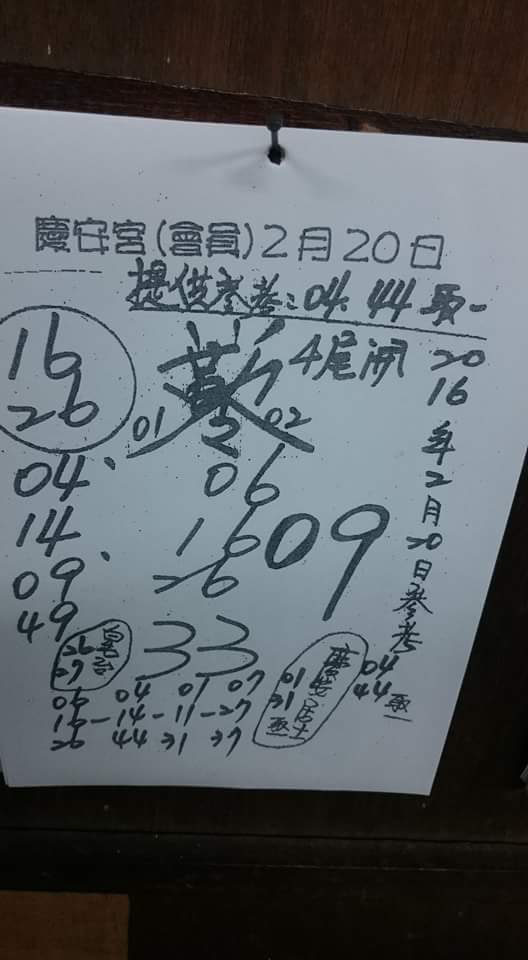 慶安宮(會員)2月20日
提供參考:04.44取一
4尾開
16
26
01
02
04、
14
09、
49
06
16
26
09
33
2016年2月20日參考
04
44取一
26
27
06 04 01 07
16-14-11-27
26 44 31 37
慶安居士
01
31
取一